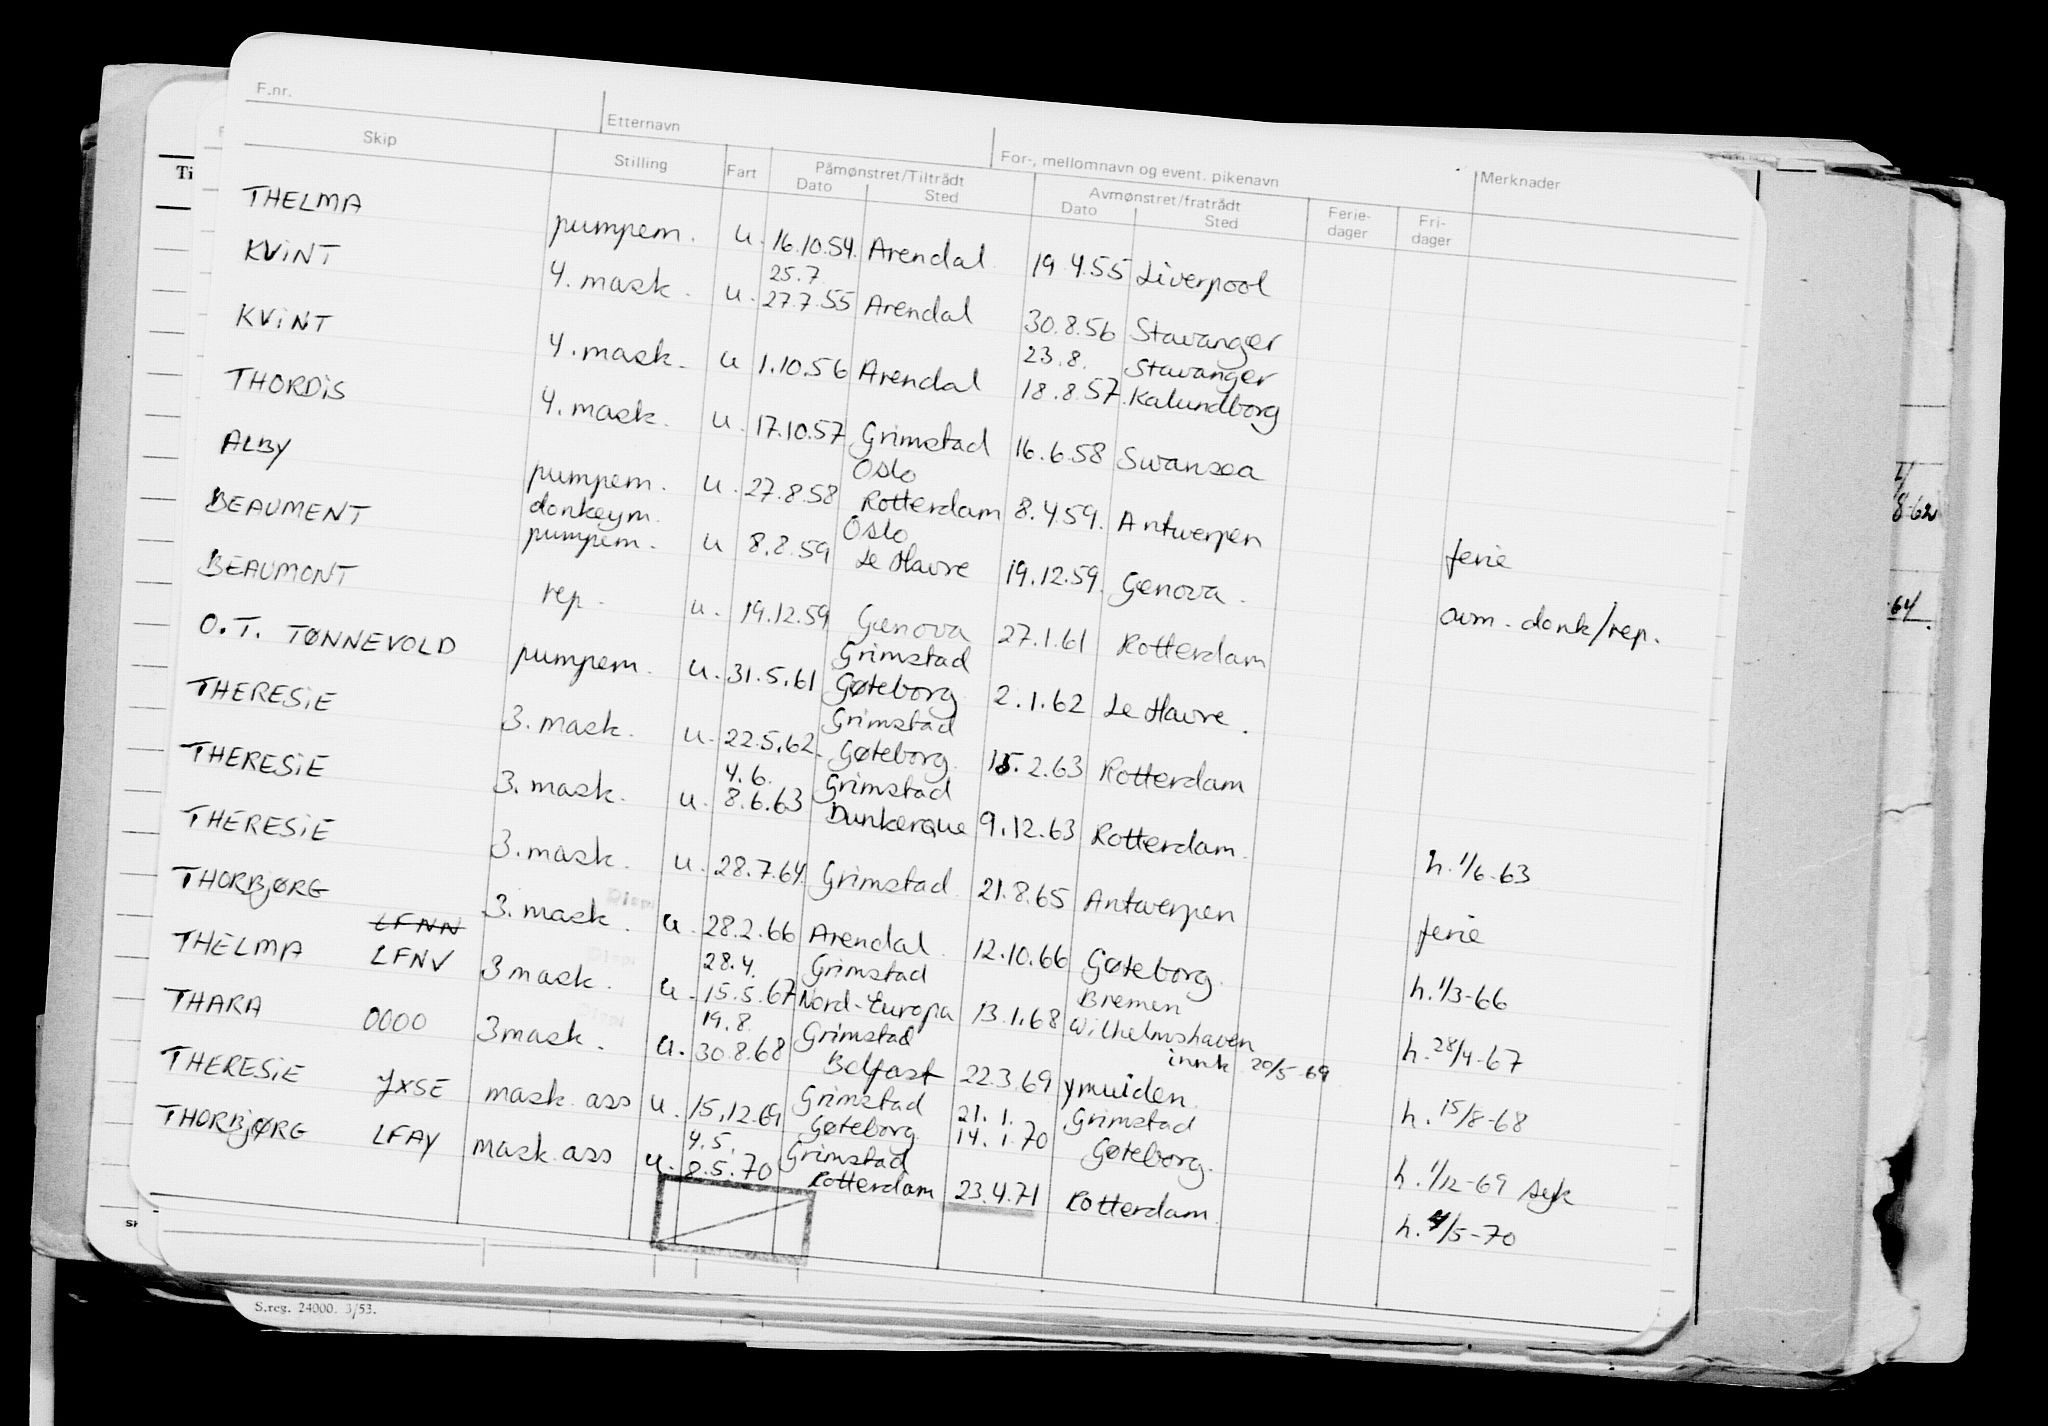 F.nr. Etternavn For-, mellomnavn og event. pikenavn Merknader
Skip Stilling Fart Påmønstret/Tiltrådt Avmønstret/fratrådt Ferie- Fri-
Dato Sted Dato Sted dager dager
THELMA pumpem. u. 16.10.54. Arendal 19.4.55 Liverpool
25.7
KViNT 4. mask. u. 27.7.55 Arendal 30.8.56 Stavanger
23.8. Stavanger
KViNT 4. mask. u 1.10.56 Arendal 18.8.57. Kalundborg
THORDiS 4. mask. u. 17.10.57 Grimstad 16.6.58 Swansea
Oslo
ALBY pumpem. u. 27.8.58 Rotterdam 8.4.59. Antwerpen ferie
donkeym. Oslo
BEAUMENT pumpem. u 8.8.59 Le Havre 19.12.59. Genova. avm. donk/rep.
BEAUMONT rep. u. 19.12.59 Genova 27.1.61 Rotterdam
Grimstad
O.T. TØNNEVOLD pumpem. u. 31.5.61 Gøteborg 2.1.62 Le Havre.
Grimstad
THERESiE 3. mask. u. 22.5.62. Gøteborg. 15.2.63 Rotterdam
4.6. Grimstad
THERESiE 3. mask. u. 8.6.63 Dunkerque 9.12.63 Rotterdam. h. 1/6-63
THERESiE 3. mask. u. 28.7.64. Grimstad. 21.8.65 Antwerpen ferie
THORBJØRG 3. mask. u. 28.2.66 Arendal. 12.10.66 Gøteborg. h. 1/3-66
LFNN 28.4. Grimstad Bremen
THELMA LFNV 3 mask. u. 15.5.67 Nord-Europa 13.1.68 Wilhelmshaven h. 28/4-67
19.8. Grimstad innk 20/5-69
THARA OOOO 3mask. u. 30.8.68 Belfast 22.3.69 Ymuiden. h. 15/8-68
Grimstad 21.1. Grimstad
THERESiE JXSE mask. ass u. 15.12.69 Gøteborg 14.1.70 Gøteborg. h. 1/12-69 syk
4.5. Grimstad
THORBJØRG LFAY mask. ass u. 8.5.70 Rotterdam 23.4.71 Rotterdam. h. 4/5-70
S.reg. 24000. 3/53.
Ti
8-62
64